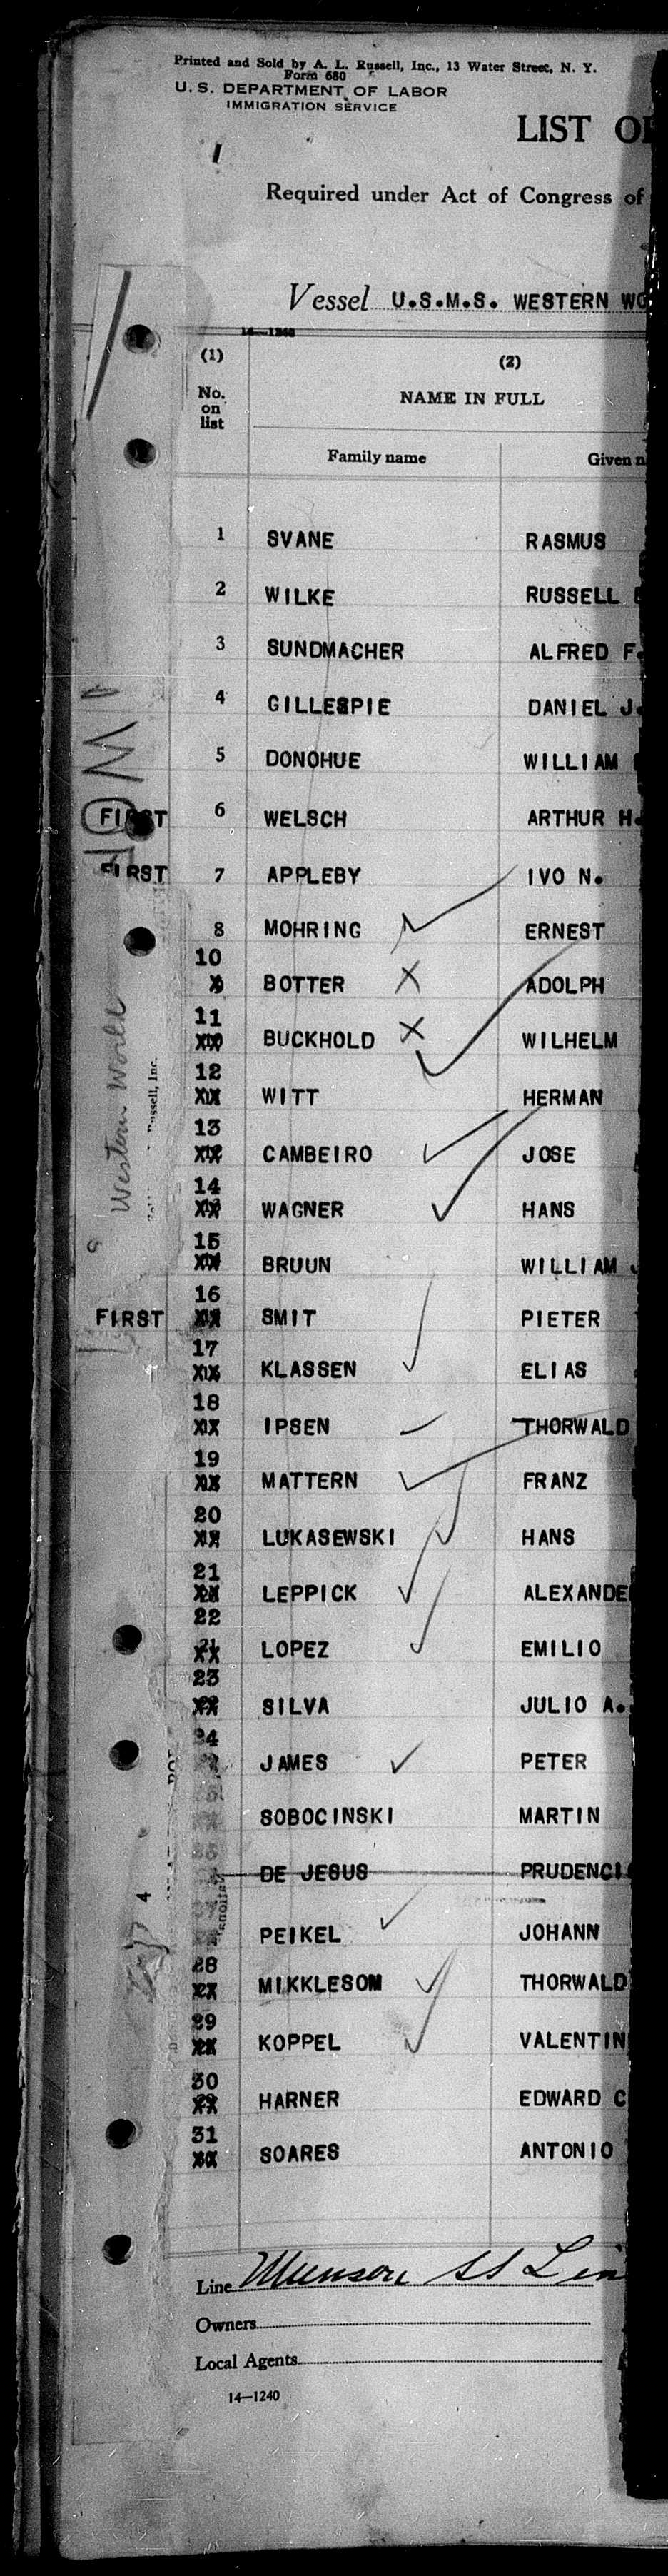 Printed and Sold by A. L. Russell, Inc., 13 Water Street, N. Y.
Form 680
U. S. DEPARTMENT OF LABOR
IMMIGRATION SERVICE
LIST OF
Required under Act of Congress of
Vessel U.S.M.S. WESTERN WO
14—1240
(1) (2)
No. on list NAME IN FULL
Family name Given n
1 SVANE RASMUS
2 WILKE RUSSELL
3 SUNDMACHER ALFRED F.
4 GILLESPIE DANIEL J.
5 DONOHUE WILLIAM
FIRST 6 WELSCH ARTHUR H.
FIRST 7 APPLEBY IVO N.
8 MOHRING ERNEST
10 BOTTER ADOLPH
11 BUCKHOLD WILHELM
12 WITT HERMAN
13 CAMBEIRO JOSE
14 WAGNER HANS
15 BRUUN WILLIAM
FIRST 16 SMIT PIETER
17 KLASSEN ELIAS
18 IPSEN THORWALD
19 MATTERN FRANZ
20 LUKASEWSKI HANS
21 LEPPICK ALEXANDE
22 LOPEZ EMILIO
23 SILVA JULIO A.
24 JAMES PETER
SOBOCINSKI MARTIN
DE JESUS PRUDENCI
PEIKEL JOHANN
28 MIKKLESOM THORWALD
29 KOPPEL VALENTIN
30 HARNER EDWARD C
31 SOARES ANTONIO
Western World
Russell, Inc.
4
Line Munson SS Lin
Owners
Local Agents
14—1240